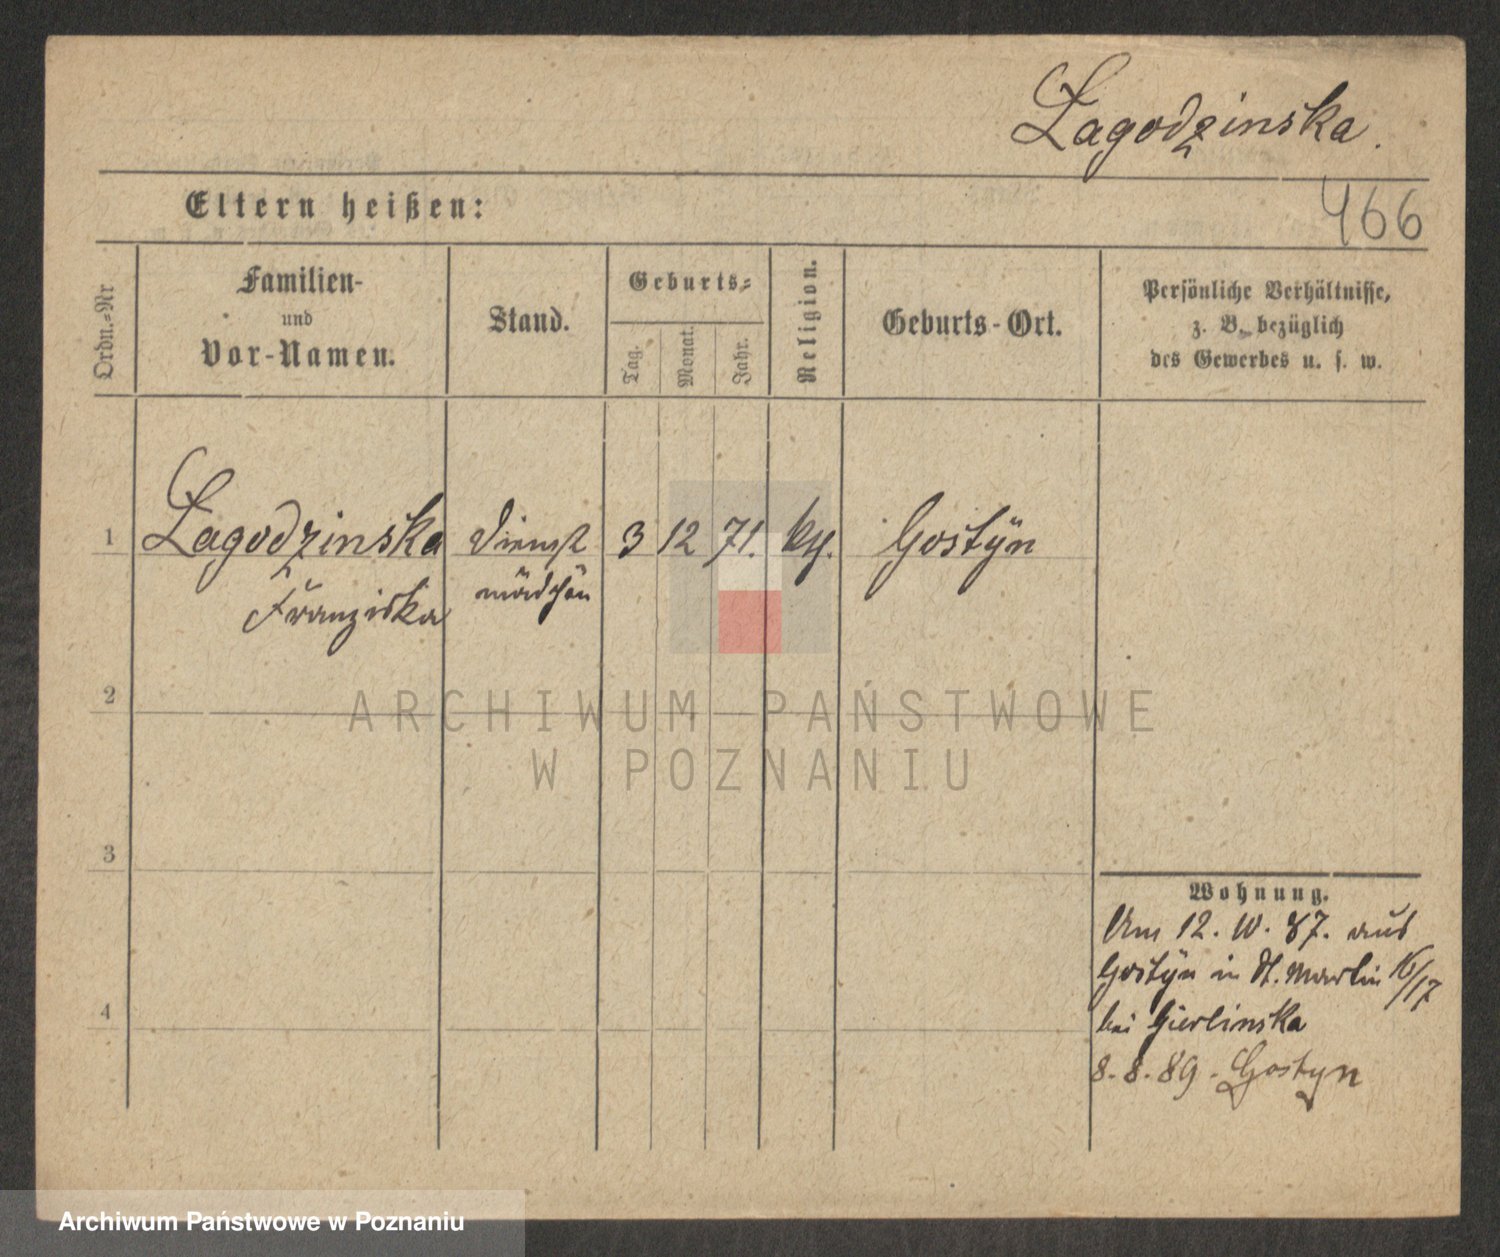 Lagodzinska.
466
Eltern heißen:
Ordn.=Nr
Familien-
und
Vor-Namen.
Stand.
Geburts=
Tag.
Monat.
Jahr.
Religion.
Geburts-Ort.
Persönliche Verhältnisse,
z. B. bezüglich
des Gewerbes u. s. w.
1
Lagodzinska
Franziska
Dienst
mädchen
3
12
71.
Gostÿn
2
3
4
ARCHIWUM PAŃSTWOWE
W POZNANIU
Wohnung.
Am 12. 10. 87. aus
Gostÿn in St. Martin 16/17
bei Gierlinska
8. 8. 89. Gostyn
Archiwum Państwowe w Poznaniu